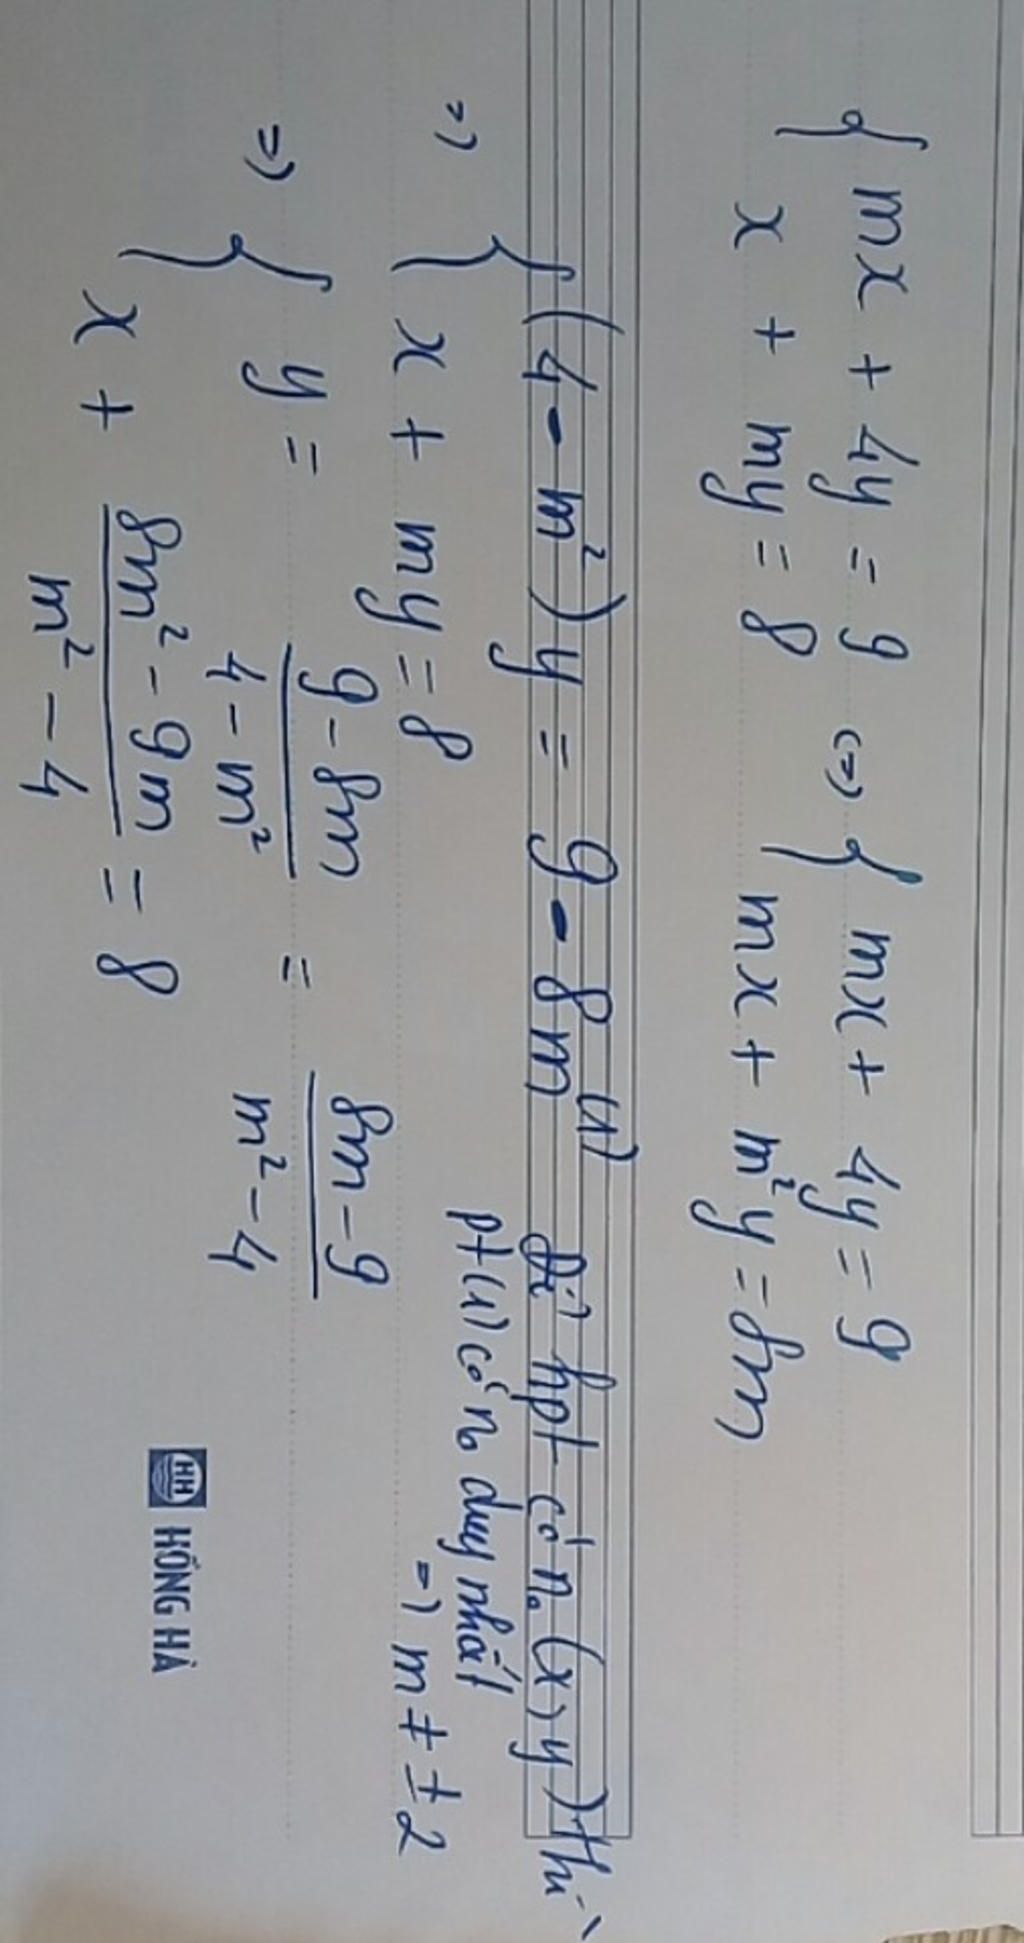 { mx + 4y = 9 <=> { mx + 4y = 9
x + my = 8 mx + m²y = 8m
=> { (4 - m²)y = 9 - 8m (1) Để hpt có n₀ (x, y) thì
x + my = 8 pt (1) có n₀ duy nhất
=> m ≠ ±2
=> { y = (9 - 8m)/(4 - m²) = (8m - 9)/(m² - 4)
x + (8m² - 9m)/(m² - 4) = 8
HH HỒNG HÀ